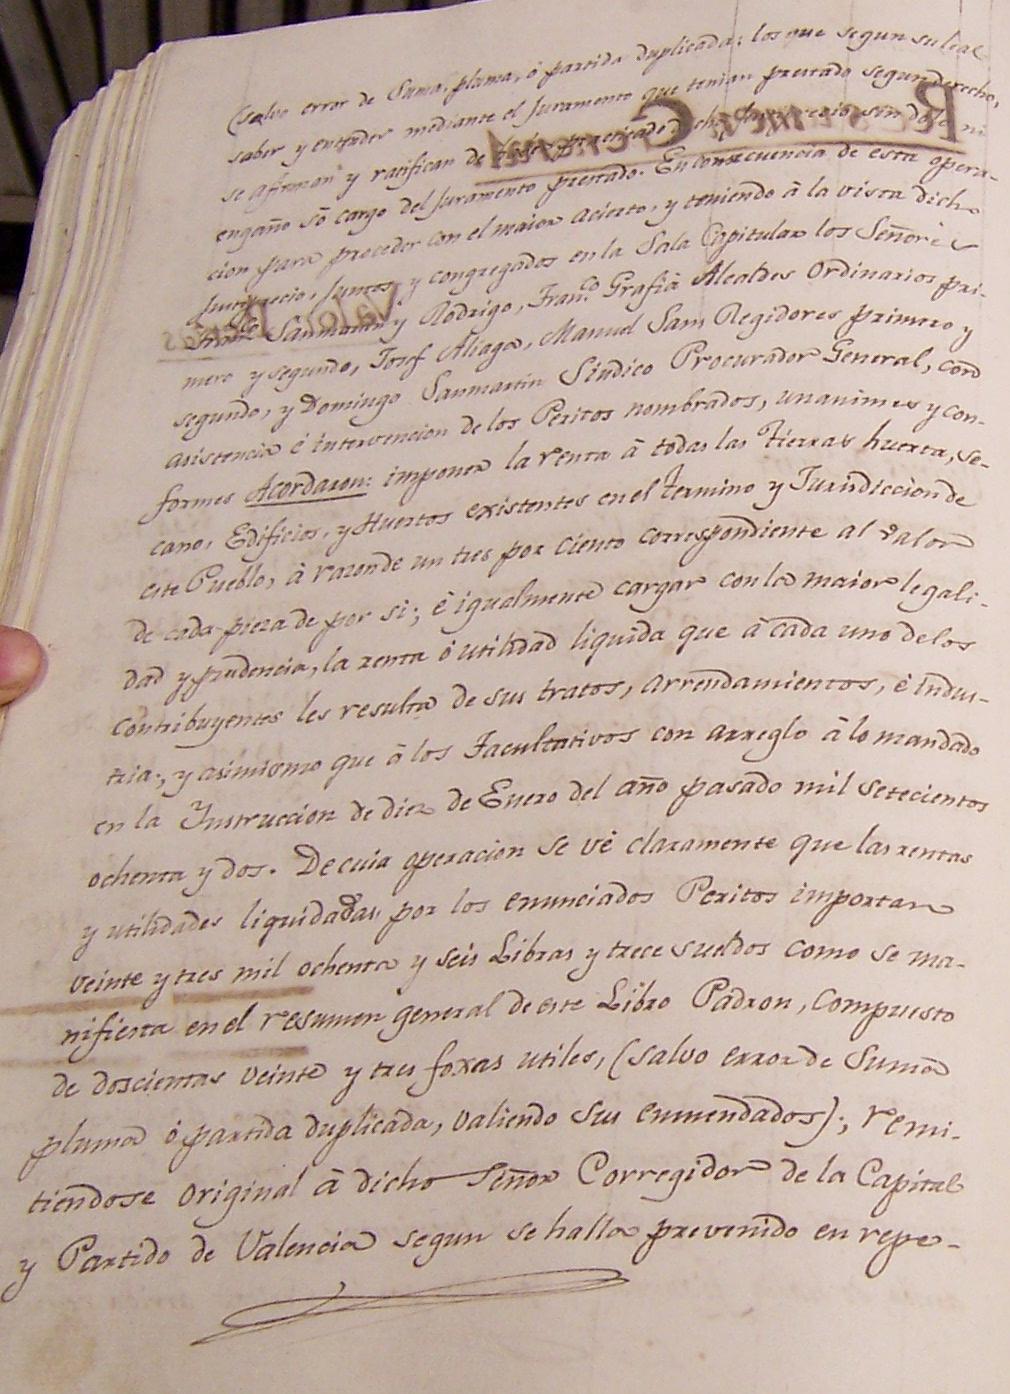 (salvo error de suma, pluma, ò partida duplicada; los que segun su leal
saber y entender mediante el Juramento que tenian prestado segun derecho,
se afirman y ratifican de haber practicado dicho sin dolo ni
engaño sò cargo del Juramento prestado. En consecuencia de esta opera-
cion para proceder con el maior acierto, y teniendo à la vista dicho
Justiprecio, Juntos y congregados en la Sala Capitular los Señores
Franco Sanmartin y Rodrigo, Franco Grafià Alcaldes Ordinarios pri-
mero y segundo, Josef Aliaga, Manuel Sans Regidores primero y
segundo, y Domingo Sanmartin Sindico Procurador General, con
asistencia è intervencion de los Peritos nombrados, unanimes y con-
formes Acordaron: imponer la renta à todas las Tierras huerta, se-
cano, Edificios, y Huertos existentes en el termino y Jurisdiccion de
este Pueblo, à razon de un tres por ciento correspondiente al valor
de cada pieza de por si; è igualmente cargar con la maior legali-
dad y prudencia, la renta ò utilidad liquida que à cada uno de los
contribuyentes les resulta de sus tratos, arrendamientos, è indus-
tria, y asimismo que à los Facultativos con arreglo à lo mandado
en la Instruccion de diez de Enero del año pasado mil setecientos
ochenta y dos. De cuia operacion se vè claramente que las rentas
y utilidades liquidadas por los enunciados Peritos importan
veinte y tres mil ochenta y seis Libras y trece sueldos como se ma-
nifiesta en el resumen general de este Libro Padron, compuesto
de doscientas veinte y tres foxas utiles, (salvo error de suma
pluma ò partida duplicada, valiendo sus enmendados); remi-
tiendose original à dicho Señor Corregidor de la Capital
y Partido de Valencia segun se halla prevenido en repe-